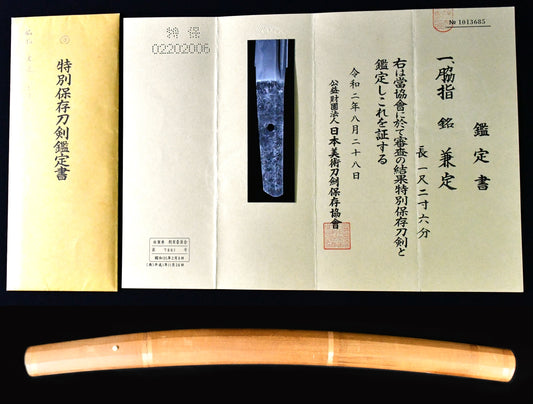 特別保存刀剣鑑定書
特保
02202006
№ 1013685
鑑定書
一、脇指 銘 兼定
長 一尺二寸六分
右は當協會に於て審査の結果特別保存刀剣と
鑑定しこれを証する
令和二年八月二十八日
公益財團法人 日本美術刀剣保存協會